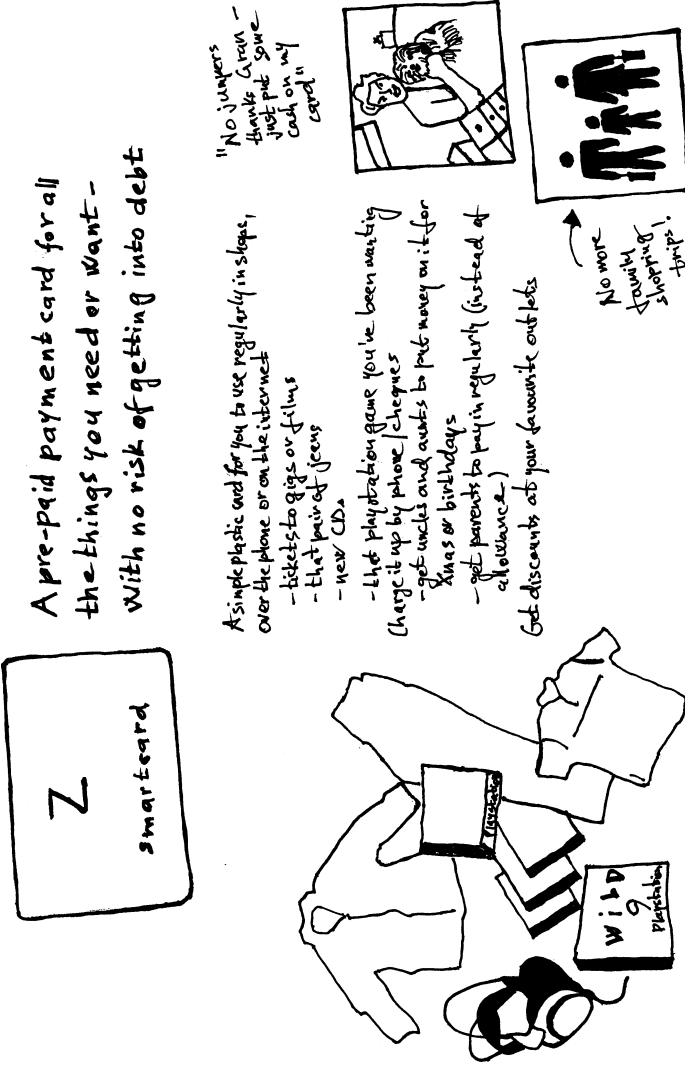 Z
smartcard
A pre-paid payment card for all
the things you need or want -
With no risk of getting into debt
A simple plastic card for you to use regularly in shops,
over the phone or on the internet
- tickets to gigs or films
- that pair of jeans
- new CDs
- that playstation game you've been wanting
Charge it up by phone/cheques
- get uncles and aunts to put money on it for
Xmas or birthdays
- get parents to pay in regularly (instead of
allowance)
Get discounts at your favourite outlets
"No jumpers
thanks Gran -
just put some
cash on my
card"
No more
family
shopping
trips!
Playstation
WiLD
9
Playstation